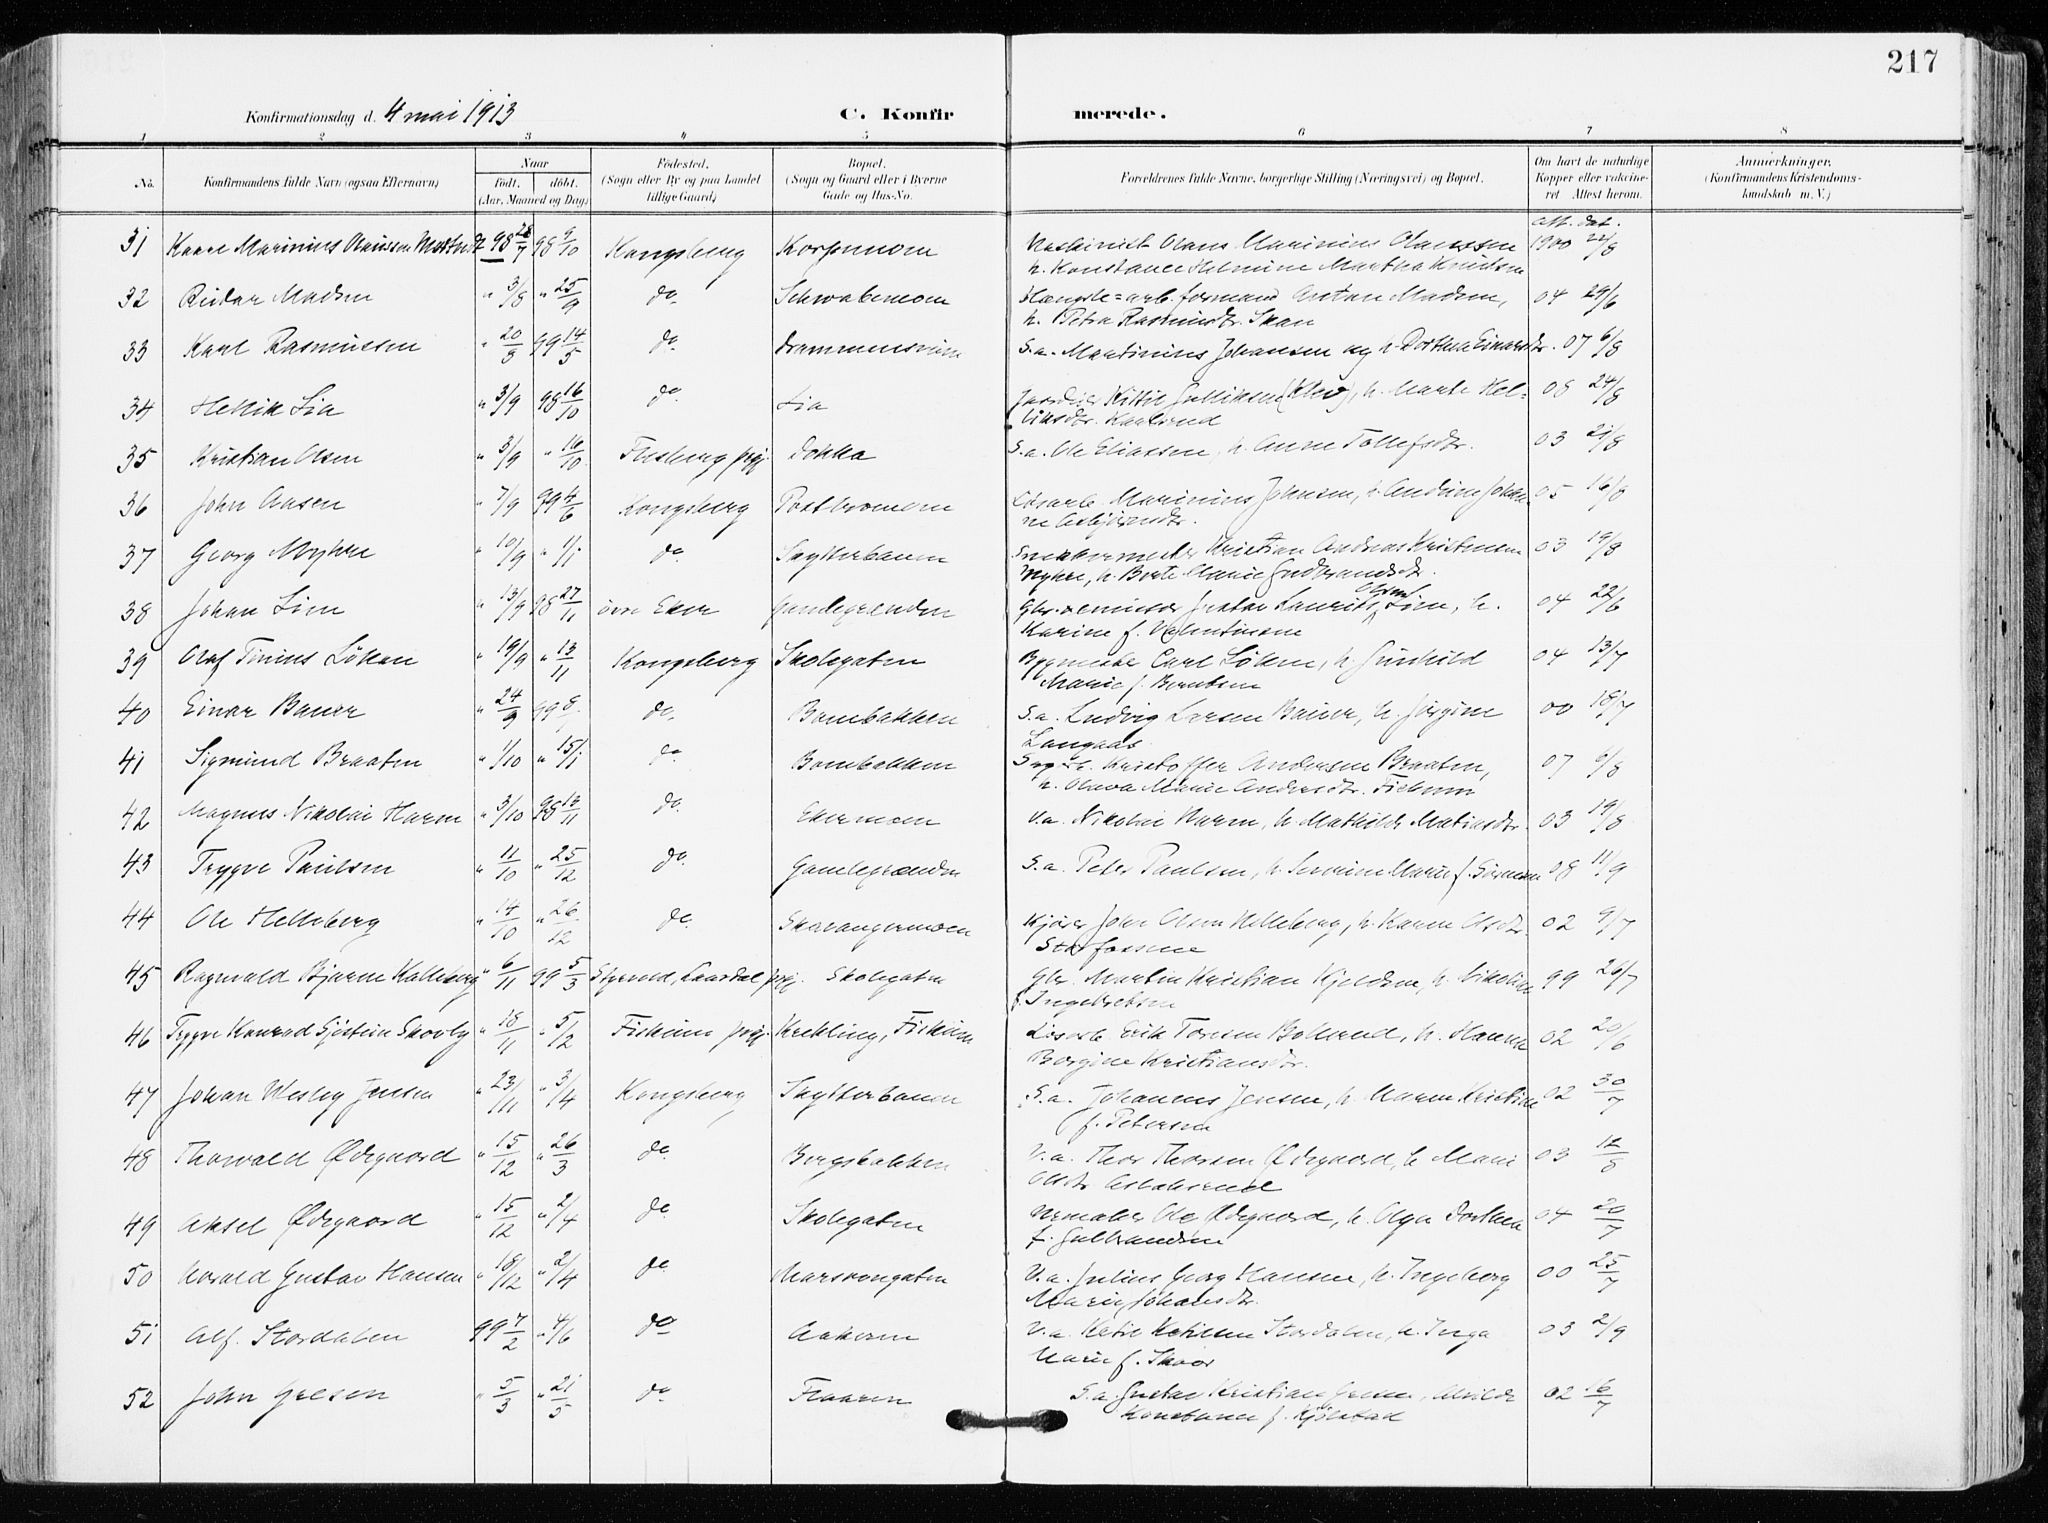 217
Konfirmationsdag d. 4 mai 1913 C. Konfirmerede.
1 2 3 4 5 6 7 8
No. Konfirmandens fulde Navn (ogsaa Efternavn) Naar født, døbt. (Aar, Maaned og Dag) Fødested. (Sogn eller By og paa Landet tillige Gaard) Bopæl. (Sogn og Gaard eller i Byerne Gade og Hus-No. Forældrenes fulde Navne, borgerlige Stilling (Næringsvei) og Bopæl. Om havt de naturlige Kopper eller vaccineret Attest herom. Anmerkninger. (Konfirmandens Kristendomskundskab m. V.)
att. dat.
31 Kaare Marinius Olaussen 98 28/7 98 9/10 Kongsberg Korpemoen Maskinist Olaus Marinius Olaussen 1900 22/8
h. Konstance Helmine Martha Knudsen
32 Reidar Madsen " 3/8 " 25/9 do. Schwabemoen arb. formand Anton Madsen, 04 29/6
h. Petra Rasmusdtr. Skau
33 Karl Rasmussen " 20/8 99 14/5 do. S.a. Martinius Johansen og h. Dorthea Einarsdtr. 07 6/8
34 Hellik Lia " 3/9 98 16/10 do. Lia Kittil Gulliksen (Klev), h. Marte Hel-
liksdtr. 08 24/8
35 Kristian Olsen " 3/9 " 16/10 Flesberg prgj. Dokka S.a. Ole Eliassen, h. Anne Tollefsdtr. 03 21/8
36 John Aasen " 7/9 99 4/6 Kongsberg Løsarb. Marinius Johnsen, h. Andrine 05 16/8
37 Georg Myhre " 10/9 " 1/1 do. Skytterbanen Snekkermester Kristian Andreas Kristensen 03 19/8
Myhre, h. Berte Marie Gudbrandsdtr.
38 Johan Lien " 13/9 98 27/11 øvre Eker Gamlegrenden Gustav Laurits Lien, h. 04 22/6
Karine f. Valentinsen
39 Olaf Tinius Løken " 19/9 " 13/11 Kongsberg Skolegaten Bygmester Carl Løken, h. Gunhild 04 13/7
Marie f. Berntsen
40 Einar Bauer " 24/9 99 8/ do. Bombakken S.a. Ludvig Larsen Bauer, h. Jørgine 00 18/7
Langaas
41 Sigmund Braaten " 1/10 " 15/1 do Bombakken Kristoffer Andersen Braaten, 07 6/8
h. Olava Marie Andersdtr. Fiskum
42 Magnus Nikolai Harm " 3/10 98 13/11 do. Ekermoen V.a. Nikolai Harm, h. Mathilde Matiasdtr. 03 19/8
43 Trygve Paulsen " 11/10 " 25/12 do. Gamlegrænden S.a. Peter Paulsen, h. Severine Marie f. Sørensen 08 11/9
44 Ole Helleberg " 14/10 " 26/12 do. Skavangermoen Kjører John Olsen Helleberg, h. Karen Olsdtr. 02 9/7
Storfossene
45 Ragnvald Bjarne Kalleberg " 6/11 99 5/3 Laardal prgj. Skolegaten Gbr. Martin Kristian Kjeldsen, h. Nikoline 99 26/7
f. Ingebretsen
46 Trygve Konrad Gjøstein Skovly " 18/11 " 5/2 Fiskum prgj. Krekling, Fiskum Løsarb. Erik Toresen Bollerud, h. Hanna 02 20/6
Borgine Kristiansdtr.
47 Johan Wesley Jensen " 23/11 " 3/4 Kongsberg Skytterbanen S.a. Johannes Jensen, h. Maren Kristine 02 30/7
f. Petersen
48 Thorvald Ødegaard " 15/12 " 26/3 do. Bergsbakken V.a. Thor Thorsen Ødegaard, h. Marie 03 12/8
Olsdtr.
49 Aksel Ødegaard " 15/12 " 2/4 do. Skolegaten Urmaker Ole Ødegaard, h. Olga Dorthea 04 20/7
f. Gulbrandsen
50 Harald Gustav Hansen " 18/12 " 2/4 do. Marsvengaten V.a. Julius Georg Hansen, h. Ingeborg 00 25/7
Marie Johansdtr.
51 Alf Stordalen 99 7/2 " 4/6 do Aakeren V.a. Ketil Ketilsen Stordalen, h. Inga 03 2/9
Marie f. Skoor
52 John Gresen " 5/3 " 21/5 do Flaaren S.a. Gustav Kristian Gresen, Alvilde 02 16/7
Konstance f. Kjølstad